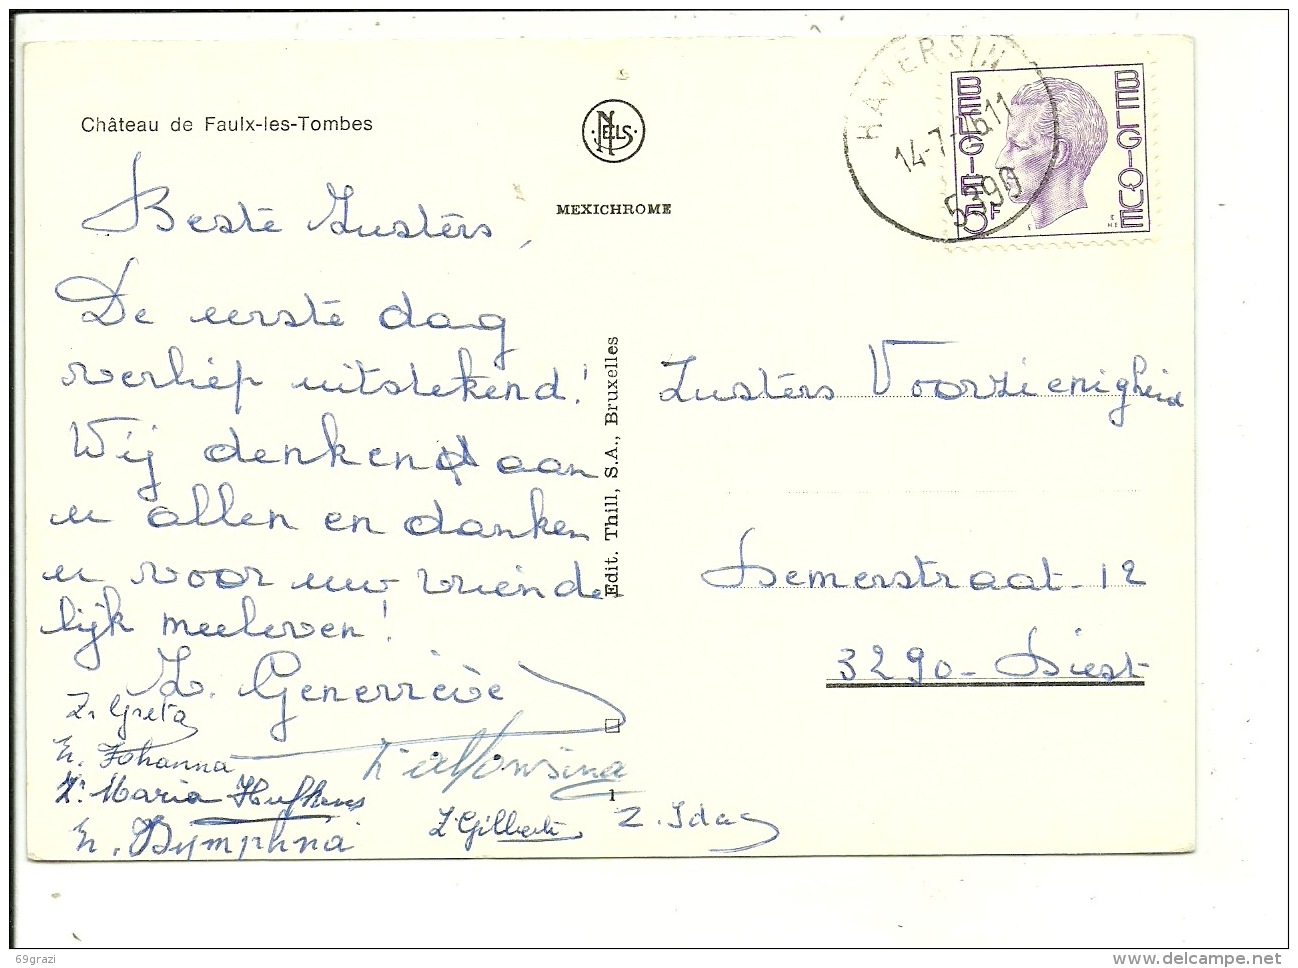 Château de Faulx-les-Tombes
NELS
MEXICHROME
HAVERSIN
14-7-7611
5390
BELGIË
BELGIQUE
5F
Beste Zusters,
De eerste dag
verliep uitstekend!
Wij denken aan
u allen en danken
u voor uw vriende
lijk meeleven!
Z. Geneviève
Zr Greta
Zr. Johanna
Zr. Maria Hufkens
Zr. Dymphna
Zr Alfonsina
Z Gilberte
Z. Ida
Edit. Thill, S.A., Bruxelles
1
Zusters Voorzienigheid
Demerstraat-12
3290-Diest
69grazi
delcampe.net